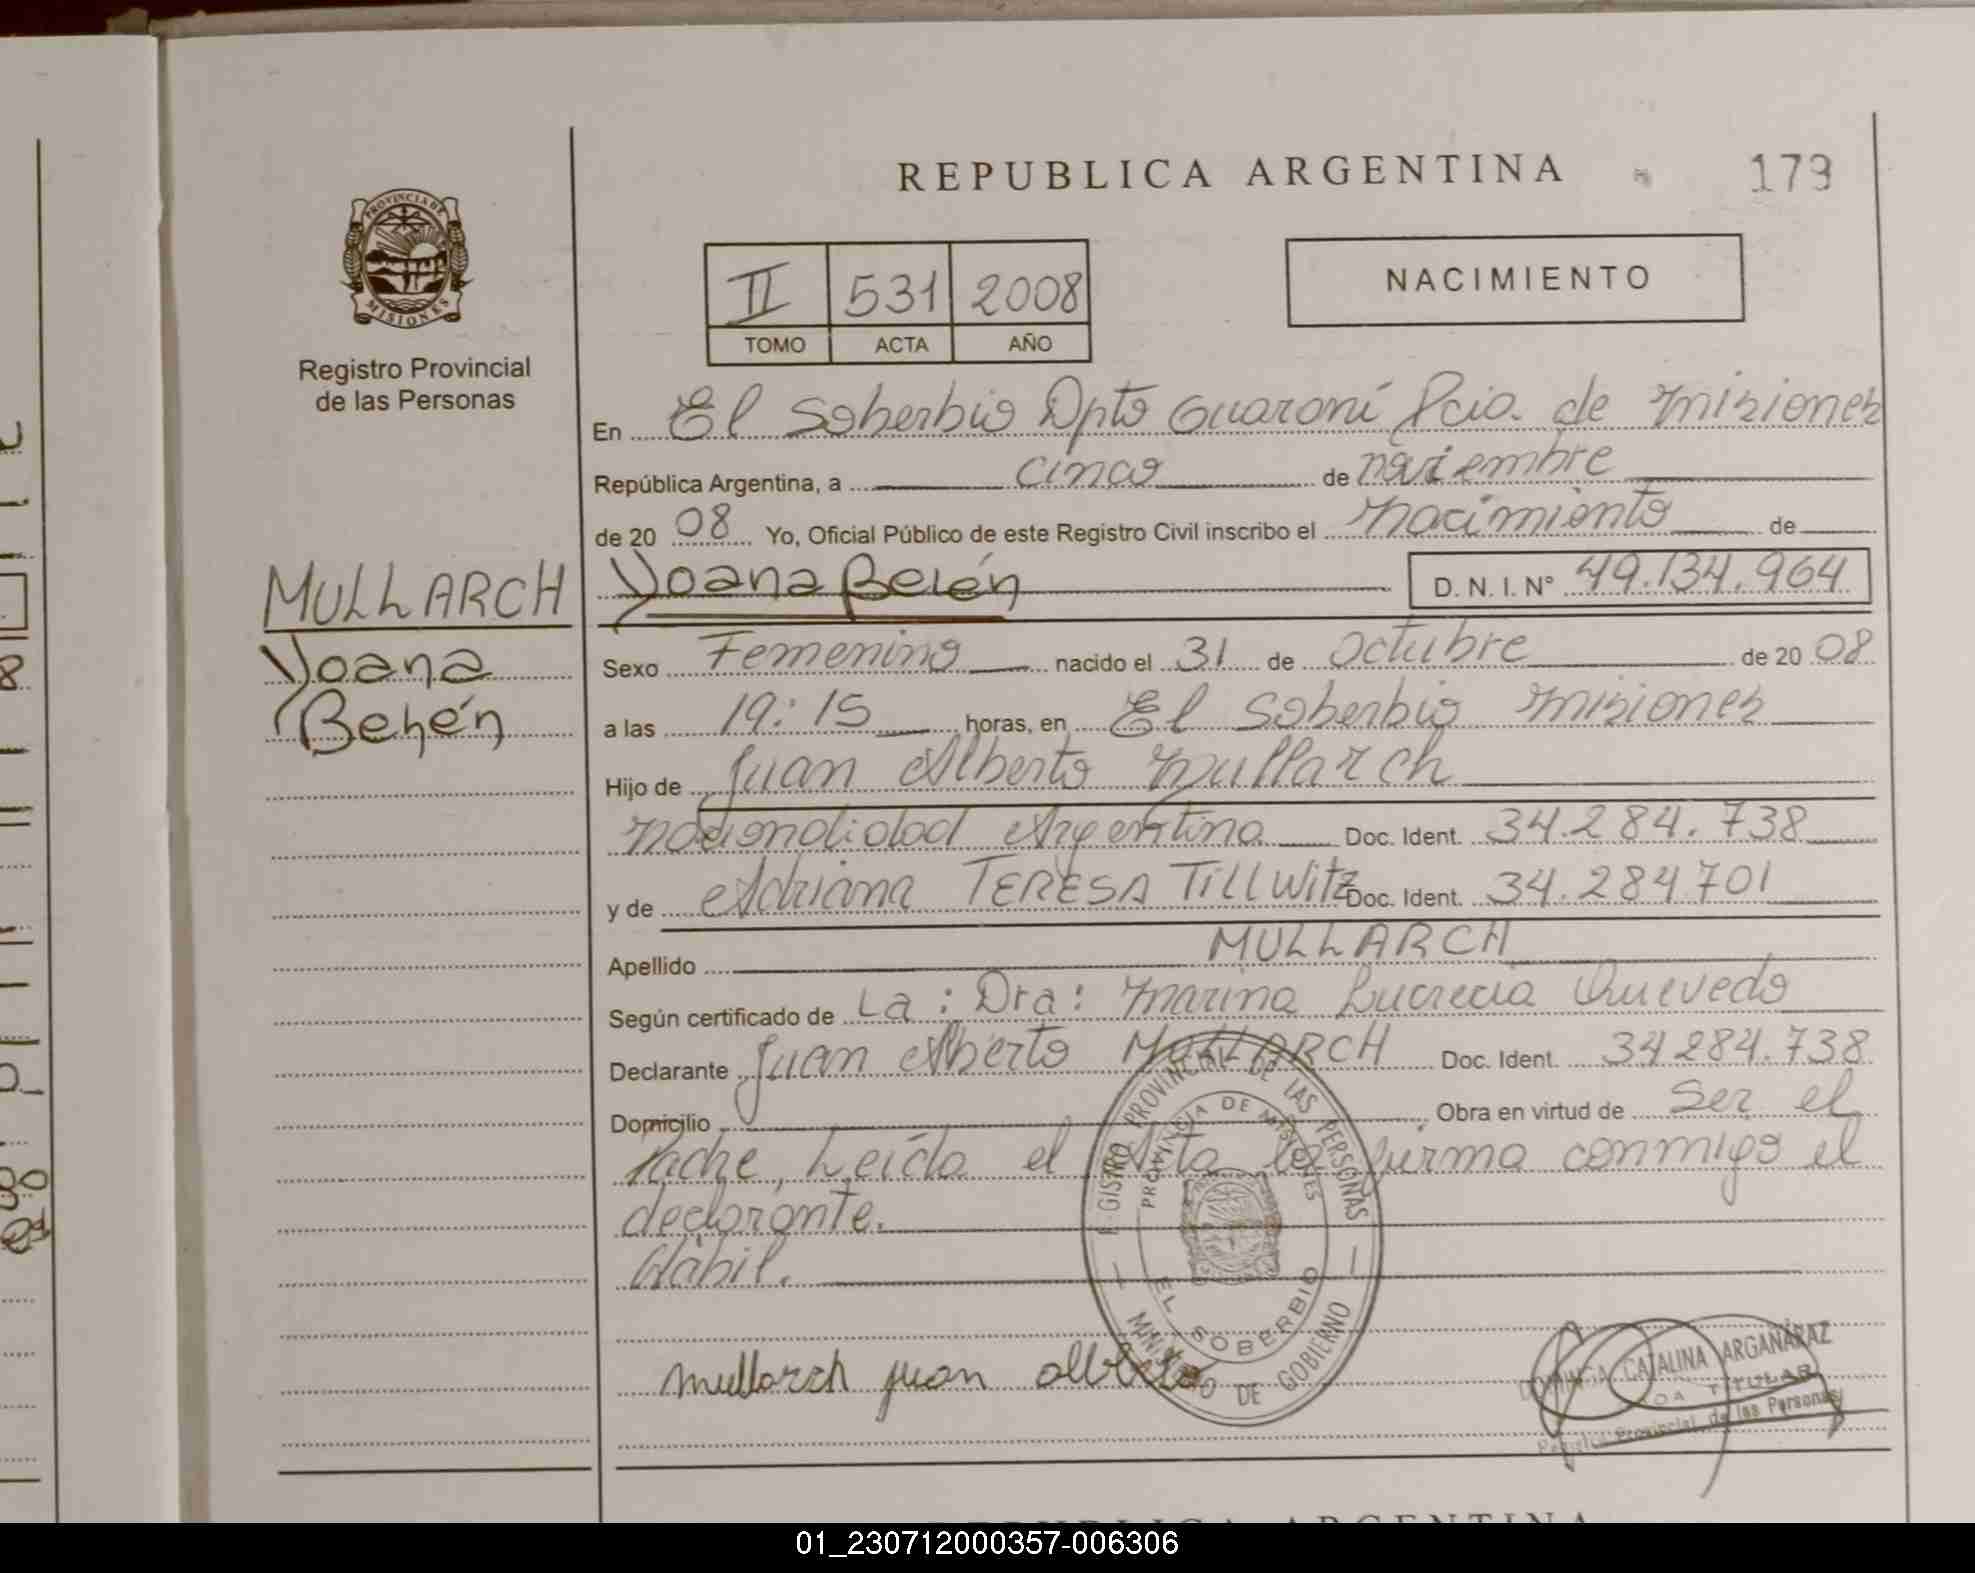 REPUBLICA ARGENTINA
179
PROVINCIA DE
MISIONES
Registro Provincial
de las Personas
II 531 2008
TOMO ACTA AÑO
NACIMIENTO
En El Soberbio Dpto Guaraní Pcia. de Misiones
República Argentina, a cinco de noviembre
de 2008 Yo, Oficial Público de este Registro Civil inscribo el nacimiento de
MULLARCH
Yoana
Belén
Yoana Belén D. N. I. N° 49.134.964
Sexo Femenino nacido el 31 de Octubre de 2008
a las 19:15 horas, en El Soberbio Misiones
Hijo de Juan Alberto Mullarch
nacionalidad Argentina Doc. Ident. 34.284.738
y de Adriana TERESA TILLWitz Doc. Ident. 34.284.701
Apellido MULLARCH
Según certificado de La: Dra: Marina Lucrecia Quevedo
Declarante Juan Alberto MULLARCH Doc. Ident. 34.284.738
Domicilio Obra en virtud de Ser el
Padre, Leída el Acta la firma conmigo el
declarante.
Hábil.
REGISTRO PROVINCIAL DE LAS PERSONAS
PROVINCIA DE MISIONES
EL SOBERBIO
MINISTERIO DE GOBIERNO
mullarch juan alberto
CATALINA ARGAÑARAZ
TITULAR
Registro Provincial de las Personas
REPUBLICA ARGENTINA
01_230712000357-006306